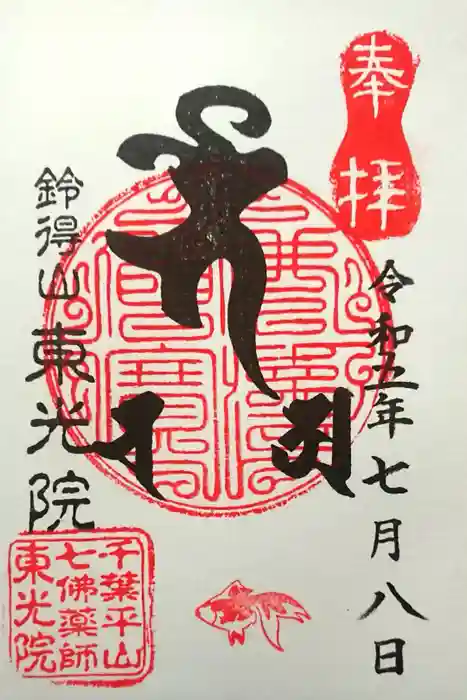 奉拝
令和五年七月八日
鈴得山東光院
千葉平山
七佛薬師
東光院